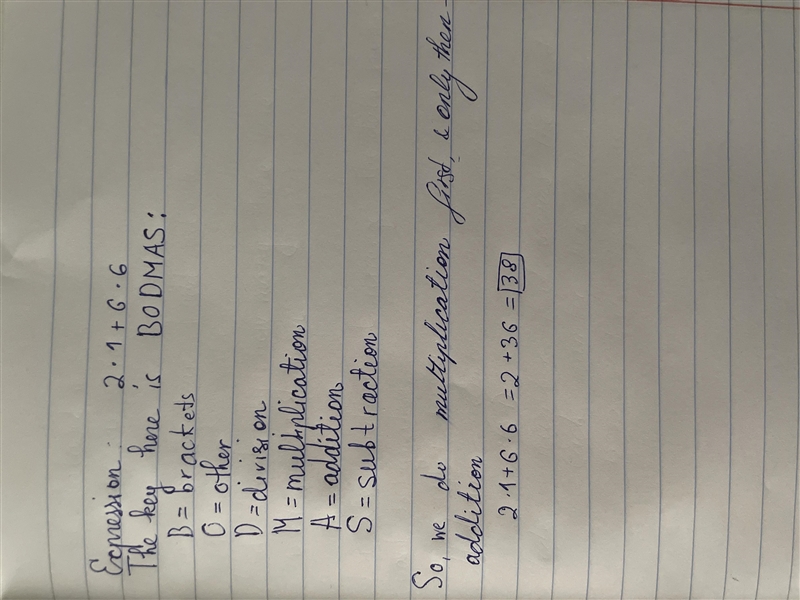 Expression: 2·1+6·6
The key here is BODMAS:
B = brackets
O = other
D = division
M = multiplication
A = addition
S = subtraction
So, we do multiplication first, & only then -
addition
2·1+6·6 = 2+36 = 38